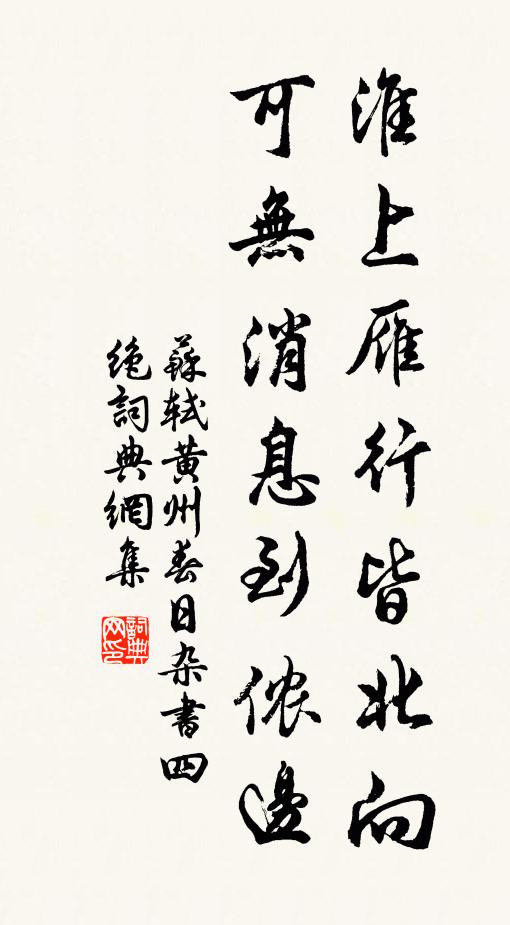 淮上雁行皆北向
可無消息到侬邊
蘇軾黄州春日杂書四
绝詞典網集
詞典网印